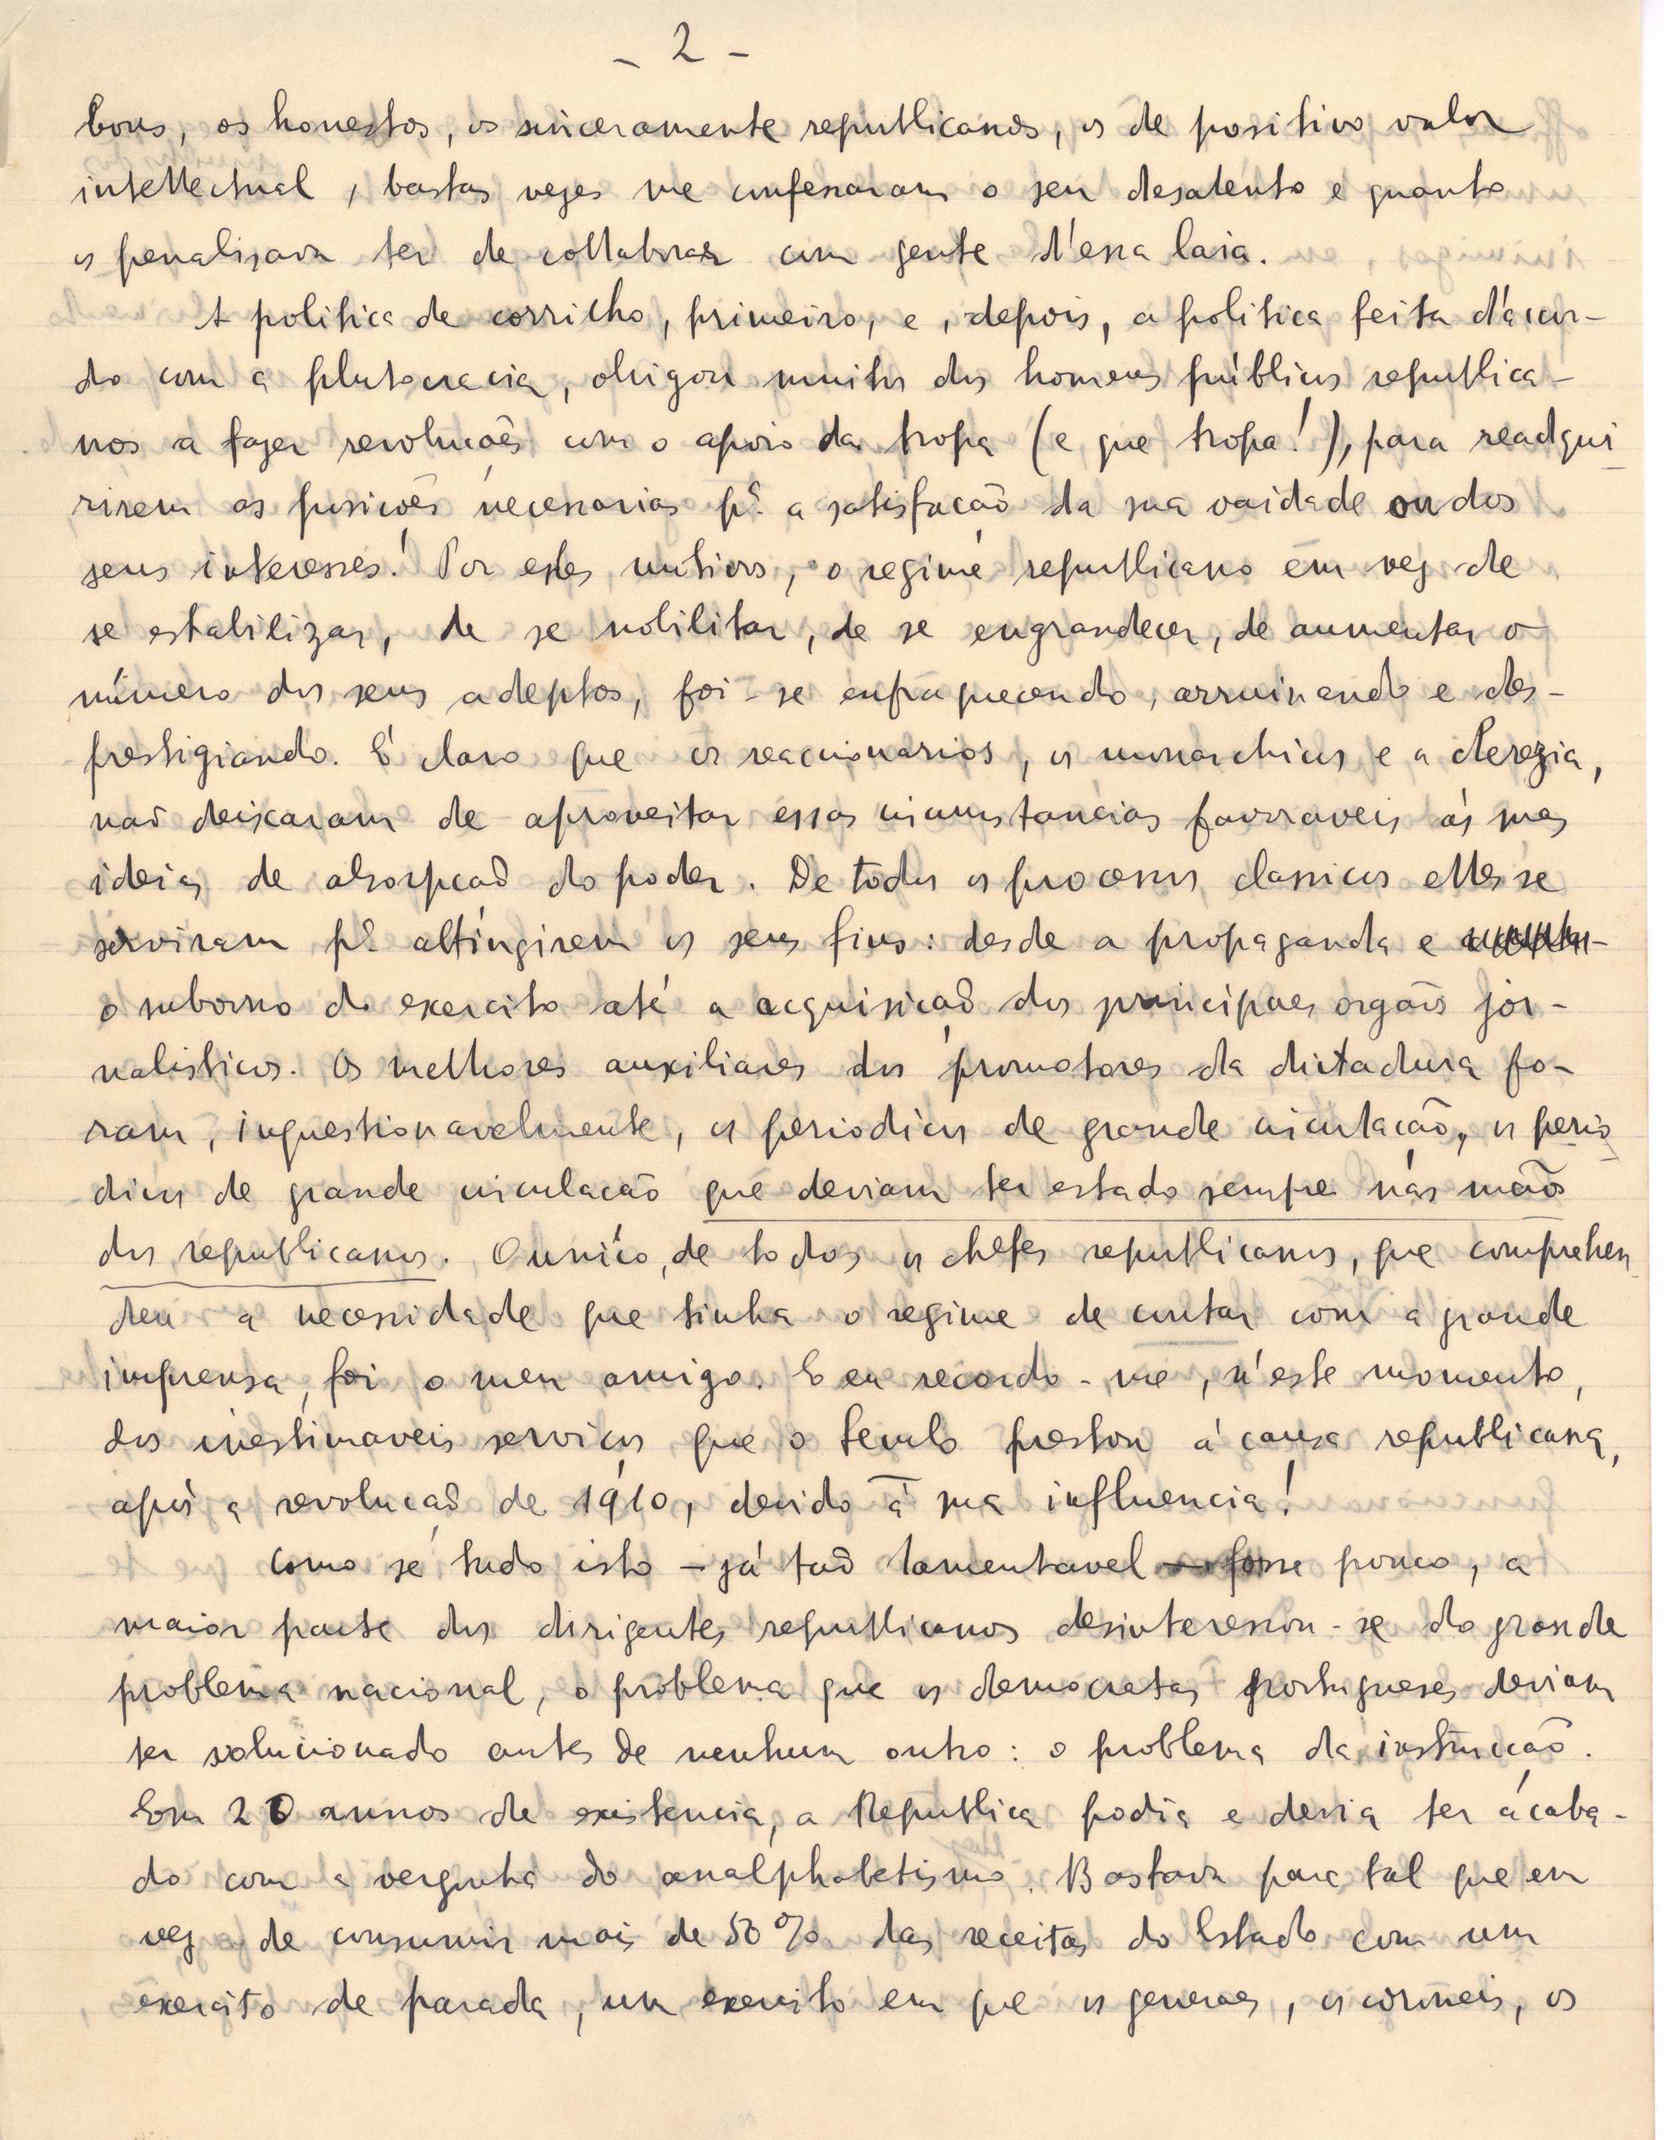 - 2 -
bons, os honestos, os sinceramente republicanos, os de positivo valor
intellectual, bastas vezes me confessaram o seu desalento e quanto
os penalisava ter de collaborar com gente d'essa laia.
A politica de corrilho, primeiro, e, depois, a politica feita d'acor-
do com a plutocracia, obrigou muitos dos homens públicos republica-
nos a fazer revoluções com o apoio da tropa (e que tropa!), para readqui
rirem as posições necessarias pª a satisfação da sua vaidade ou dos
seus interesses! Por estes motivos, o regime republicano em vez de
se estabilizar, de se nobilitar, de se engrandecer, de aumentar o
número dos seus adeptos, foi-se enfraquecendo, arruinando e des-
prestigiando. É claro que os reaccionarios, os monarchicos e a clerezia,
não deixaram de aproveitar essas circunstancias favoraveis ás suas
ideias de absorpção do poder. De todos os processos classicos elles se
serviram pª attingirem os seus fins: desde a propaganda e
o suborno do exercito até a acquisição dos principaes orgãos jor-
nalisticos. Os melhores auxiliares dos promotores da dictadura fo-
ram, inquestionavelmente, os periodicos de grande circulação, os perio
dicos de grande circulação que deviam ter estado sempre nas mãos
dos republicanos. O unico, de todos os chefes republicanos, que comprehen
deu a necessidade que tinha o regime de contar com a grande
imprensa, foi o meu amigo. E eu recordo-me, n'este momento,
dos inestimaveis serviços que o Seculo prestou á causa republicana,
após a revolução de 1910, devido á sua influencia!
Como se tudo isto - já tão lamentavel - fosse pouco, a
maior parte dos dirigentes republicanos desinteressou-se do grande
problema nacional, o problema que os democratas portugueses deviam
ter solucionado antes de nenhum outro: o problema da instrucção.
Em 20 annos de existencia, a Republica podia e devia ter acaba-
do com a vergonha do analphabetismo. Bastava para tal que em
vez de consumir mais de 50% das receitas do Estado com um
exercito de parada, um exercito em que os generaes, os coroneis, os